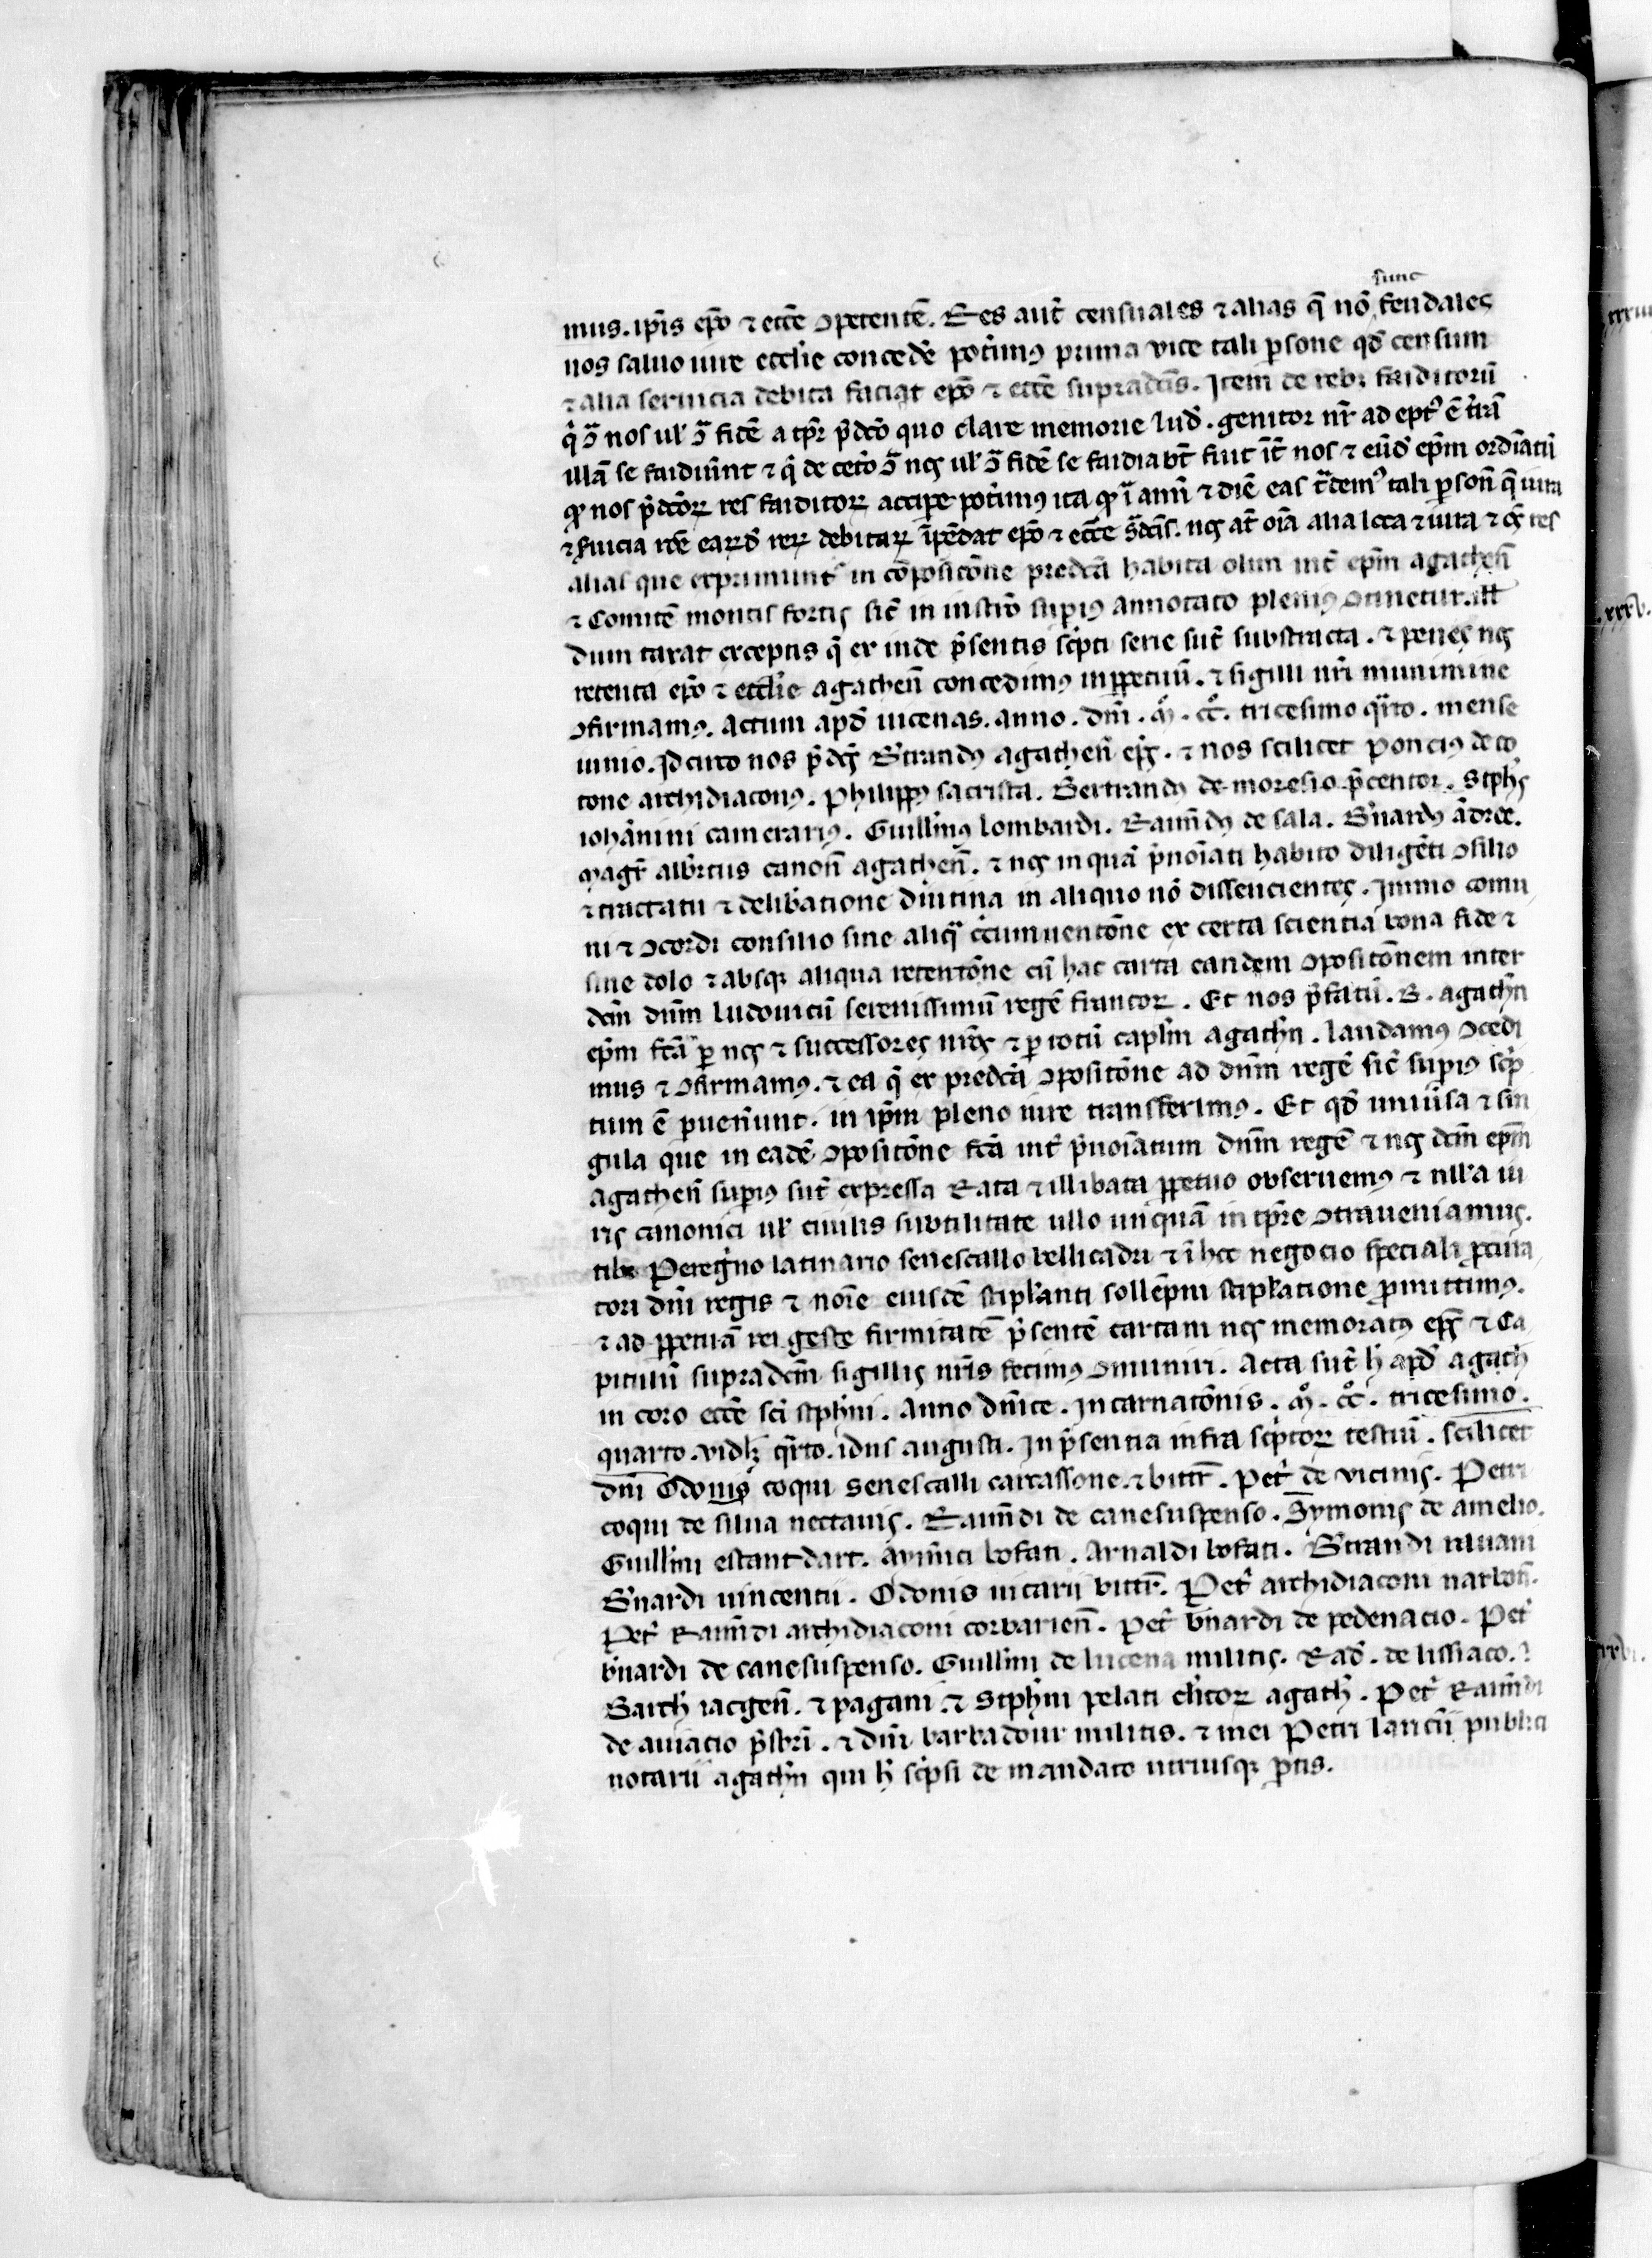 sunt
mus. ip̄is ep̄o ⁊ ecc̄e ꝯpetentē. Res aut̄ censuales ⁊ alias q̄ nō feudales
nos saluo iure eccl̄ie concedē pot̄imꝰ prima vice tali ꝑsone qd̄ censum
⁊ alia seruicia debita faciat ep̄o ⁊ ecc̄e supradc̄is. Item de rebꝫ faiditorū
q̄ ꝯ̄ nos ul̓ ꝯ̄ fidē a tp̄r p̄dc̄o quo clare memorie lud̄. genitor nr̄ ad
illā se faidiūnt ⁊ q̄ de cet̄o ꝯ̄ nos ul̓ ꝯ̄ fidē se faidiabt̄ fuit īt̄ nos ⁊ eūd̄ ep̄m ordīatū
ꝙ nos p̄dc̄oꝝ res faiditoꝝ accipe pot̄imꝰ ita ꝙ ī ann̄ ⁊ diē eas tali ꝑson̄ q̄ iura
⁊ s̄uicia debitaꝝ īpēdat ep̄o ⁊ ecc̄e s̄dc̄is. nos at̄ oīa alia ⁊ iura ⁊ res
alias que exprimunt᷑ in cōpositōne predc̄a habita olim int̄ ep̄m agathen̄
⁊ Comitē montis fortis sic̄ in inst̄ro supiꝰ annotato pleniꝰ ꝯtinetur.
dum taxat exceptis q̄ ex inde p̄sentis sc̄pti serie sūt substracta. ⁊ penes nos
retenta ep̄o ⁊ eccl̄ie agathen̄ concedimꝰ inꝑpetuū. ⁊ sigilli nr̄i munimine
ꝯfirmamꝰ. Actum apd̄ uicenas. anno. dn̄i. ṁ. cc̊. tricesimo q̄rto. mense
iunio. Idcirco nos p̄dcs̄ B̄trandꝰ agathen̄ ep̄s. ⁊ nos scilicet Ponciꝰ de co
tone archidiaconꝰ. Philippꝰ sacrista. Bertrandꝰ de moresio p̄centor. Stph̄s
iohānini camerariꝰ. Guill̄mꝰ lombardi. Raim̄dꝰ de sala. B̄nardꝰ ādree.
Magr̄ alb̄tus canon̄ agathen̄. ⁊ nos inquā p̄noīati habito diligēti ꝯsilio
⁊ tractatu ⁊ delib̄atione diutina in aliquo nō dissencientes. Immo comu
ni ⁊ ꝯcordi consilio sine aliq̄ c̄cumuentōne ex certa scientia bona fide ⁊
sine dolo ⁊ absqꝫ aliqua retentōne cū hac carta eandem ꝯpositōnem inter
dc̄m dn̄m ludouicū serenissimū regē francoꝝ. Et nos p̄fatū. B. agathn̄
ep̄m fc̄ā ꝑ nos ⁊ successores nr̄os ⁊ ꝑ totū capl̄m agathn̄. laudamꝰ ꝯcedi
mus ⁊ ꝯfirmamꝰ. ⁊ ea q̄ ex predc̄a ꝯpositōne ad dn̄m regē sic̄ supiꝰ sc̄p
tum ē ꝑuen̄iunt. in ip̄m pleno iure transferimꝰ. Et qd̄ uniūsa ⁊ sin
gula que in eadē ꝯpositōne fc̄a int̄ p̄noīatum dn̄m regē ⁊ nos dc̄m ep̄m
agathen̄ supiꝰ sūt expressa Rata ⁊ illibata ꝑpetuo obseruemꝰ ⁊ null̓a iu
ris canonici ul̓ ciuilis subtilitate ullo unquā in tp̄re ꝯtraueniamus.
tibi Pereg̓no latinario senescallo bellicadri ⁊ ī hoc negocio speciali ꝓcura
tori dn̄i regis ⁊ noīe eiusdē stipl̓anti sollēpni stipl̓atione ꝓmittimꝰ.
⁊ ad ꝑpetuā rei geste firmitatē p̄sentē cartam nos memoratꝰ ep̄s ⁊ Ca
pitulū supradc̄m sigillis nr̄is fecimꝰ ꝯmuniri. Acta sūt h̄ apd̄ agath̄
in coro ecc̄e sc̄i stph̄ni. Anno dn̄ice. Incarnatōnis. ṁ. cc̊. tricesimo.
quarto. vidlꝫ q̄rto. idus augusti. In p̄sentia infra sc̄ptoꝝ testiū. scilicet
dn̄i Odonis coqui senescalli carcassone. ⁊ bitr̄. Pet̄ de vicinis. Petri
coqui de silua nectauis. Raim̄di de canesuspenso. Symonis de amelio.
Guill̄mi estantdart. Aym̄ici bofati. Arnaldi bofati. B̄trandi niuani
B̄nardi uincentii. Odonis uicarii bitr̄. Pet̄ archidiaconi narbon̄.
Pet̄ Raim̄di archidiaconi corbarien̄. Pet̄ b̄nardi de pedenacio. Pet̄
b̄nardi de canesuspenso. Guill̄mi de lucena militis. Rad̄. de lissiaco. ⁊
Barth̄ iacgen̄. ⁊ pagani. ⁊ Stph̄ni pelati cl̄icoꝝ agath̄. Pet̄ Raim̄di
de auiacio p̄sbr̄i. ⁊ dn̄i barbadour militis. ⁊ mei Petri lancii publici
notarii agathn̄ qui h̄ sc̄psi de mandato utriusqꝫ ꝑtis.